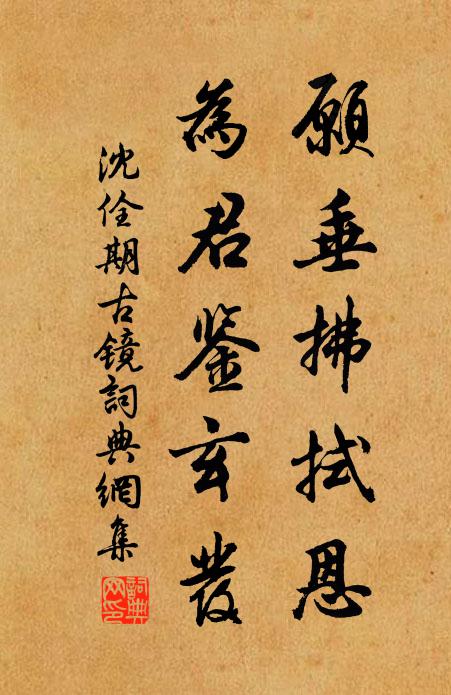 願垂拂拭恩
為君鉴玄發
沈佺期古镜詞典網集
詞典网印